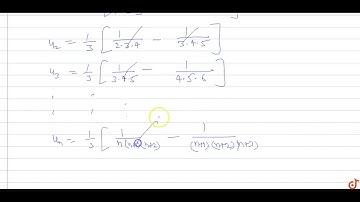 u₂ = 1/3 [ 1/2·3·4 − 1/3·4·5 ]
u₃ = 1/3 [ 1/3·4·5 − 1/4·5·6 ]
uₙ = 1/3 [ 1/n(n+1)(n+2) − 1/(n+1)(n+2)(n+3)